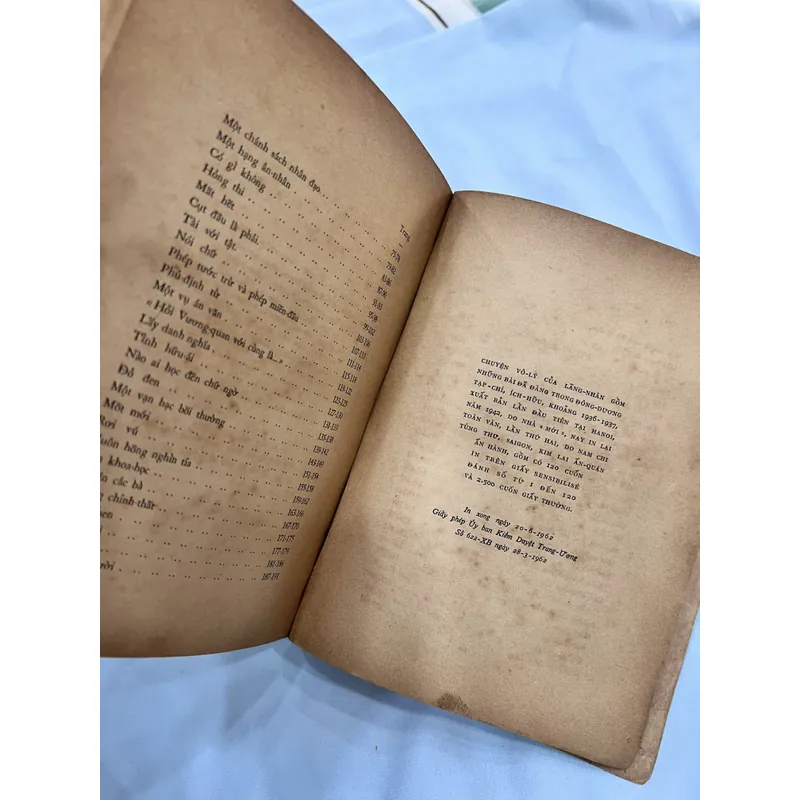 Trang
Một chánh sách nhân đạo 75-78
Một hạng ân-nhân 79-82
Có gì không 83-86
Hỏng thi 87-90
Mất hết 91-93
Cụt đầu là phải 95-98
Tài với tật 99-102
Nói chữ 103-106
Phép tước trừ và phép miễn-đầu 107-110
Phủ-định từ 111-114
Một vụ án văn 115-118
« Hỏi Vương-quan với cùng là...» 119-121
Lấy danh nghĩa 123-125
Tình hữu-ái 127-130
Nào ai học đến chữ ngờ 131-133
Đỏ đen 135-138
Một vạn bạc bồi thường 139-142
Mốt mới 143-149
Rơi vú 151-154
uôn hồng nghìn tía 155-158
n khoa-học 159-162
n các bà 163-166
g chính-thất 167-170
en 171-175
177-179
181-186
ười 187-191
CHUYỆN VÔ-LÝ CỦA LÃNG-NHÂN GỒM
NHỮNG BÀI ĐÃ ĐĂNG TRONG ĐÔNG-DƯƠNG
TẠP-CHÍ, ÍCH-HỮU, KHOẢNG 1936-1937,
XUẤT BẢN LẦN ĐẦU TIÊN TẠI HANOI,
NĂM 1942, DO NHÀ « MỚI », NAY IN LẠI
TOÀN VĂN, LẦN THỨ HAI, DO NAM CHI
TÙNG THƯ, SAIGON, KIM LAI ẤN-QUÁN
ẤN HÀNH, GỒM CÓ 120 CUỐN
IN TRÊN GIẤY SENSIBILISÉ
ĐÁNH SỐ TỪ 1 ĐẾN 120
VÀ 2.500 CUỐN GIẤY THƯỜNG.
In xong ngày 20-6-1962
Giấy phép Ủy ban Kiểm Duyệt Trung-Ương
Số 622-XB ngày 28-3-1962